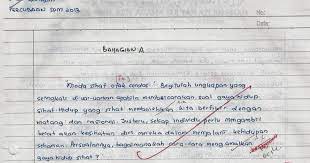 PERCUBAAN SPM 2013
No:
Date:
BAHAGIAN A
Minda sihat otak cerdas. Begitulah ungkapan yang
seringkali diuar-uarkan apabila membicarakan soal gaya hidup
sihat. Hidup yang sihat membolehkan kita berfikir dengan
matang dan rasional. Justeru, setiap individu perlu mengambil
berat akan kesihatan diri mereka dalam menjalani kehidupan
seharian. Persoalannya, bagaimanakah cara-cara mengamalkan
gaya hidup sihat?